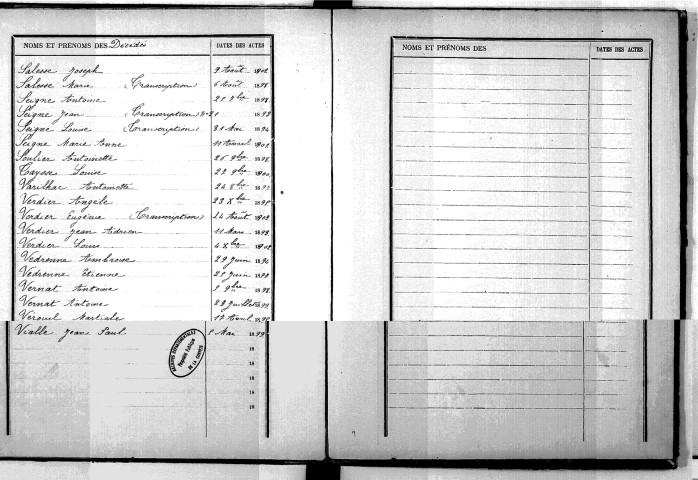 NOMS ET PRÉNOMS DES Décédés DATES DES ACTES
Salesse Joseph 9 Août 1902
Salesse Marie (Transcription) 6 Août
Seigne Antoine 21 8bre 1898
Seigne Jean (Transcription) 1893
Seigne Louise (Transcription) 21 Mai 1894
Seigne Marie Anne 11 Avril 1901
Soulier Antoinette 25 9bre 1898
Taysse Louise 22 9bre 1900
Varilhac Antoinette 24 8bre
Verdier Angèle 23 Xbre
Verdier Eugénie (Transcription) 24 Août 1902
Verdier Jean Adrien 11 Mars 1899
Verdier Louis 4 Xbre 1902
Vedrenne Ambroise 29 Juin
Vedrenne Etienne 25 Juin
Vernat Antoine 9bre 1898
Vernat Antoine 28 Juillet 1899
Vérouil Martiale 12 Avril
Vialle Jean Paul Mai 1899
18
18
18
18
18
ARCHIVES DÉPARTEMENTALES
DE LA CORRÈZE
NOMS ET PRÉNOMS DES DATES DES ACTES